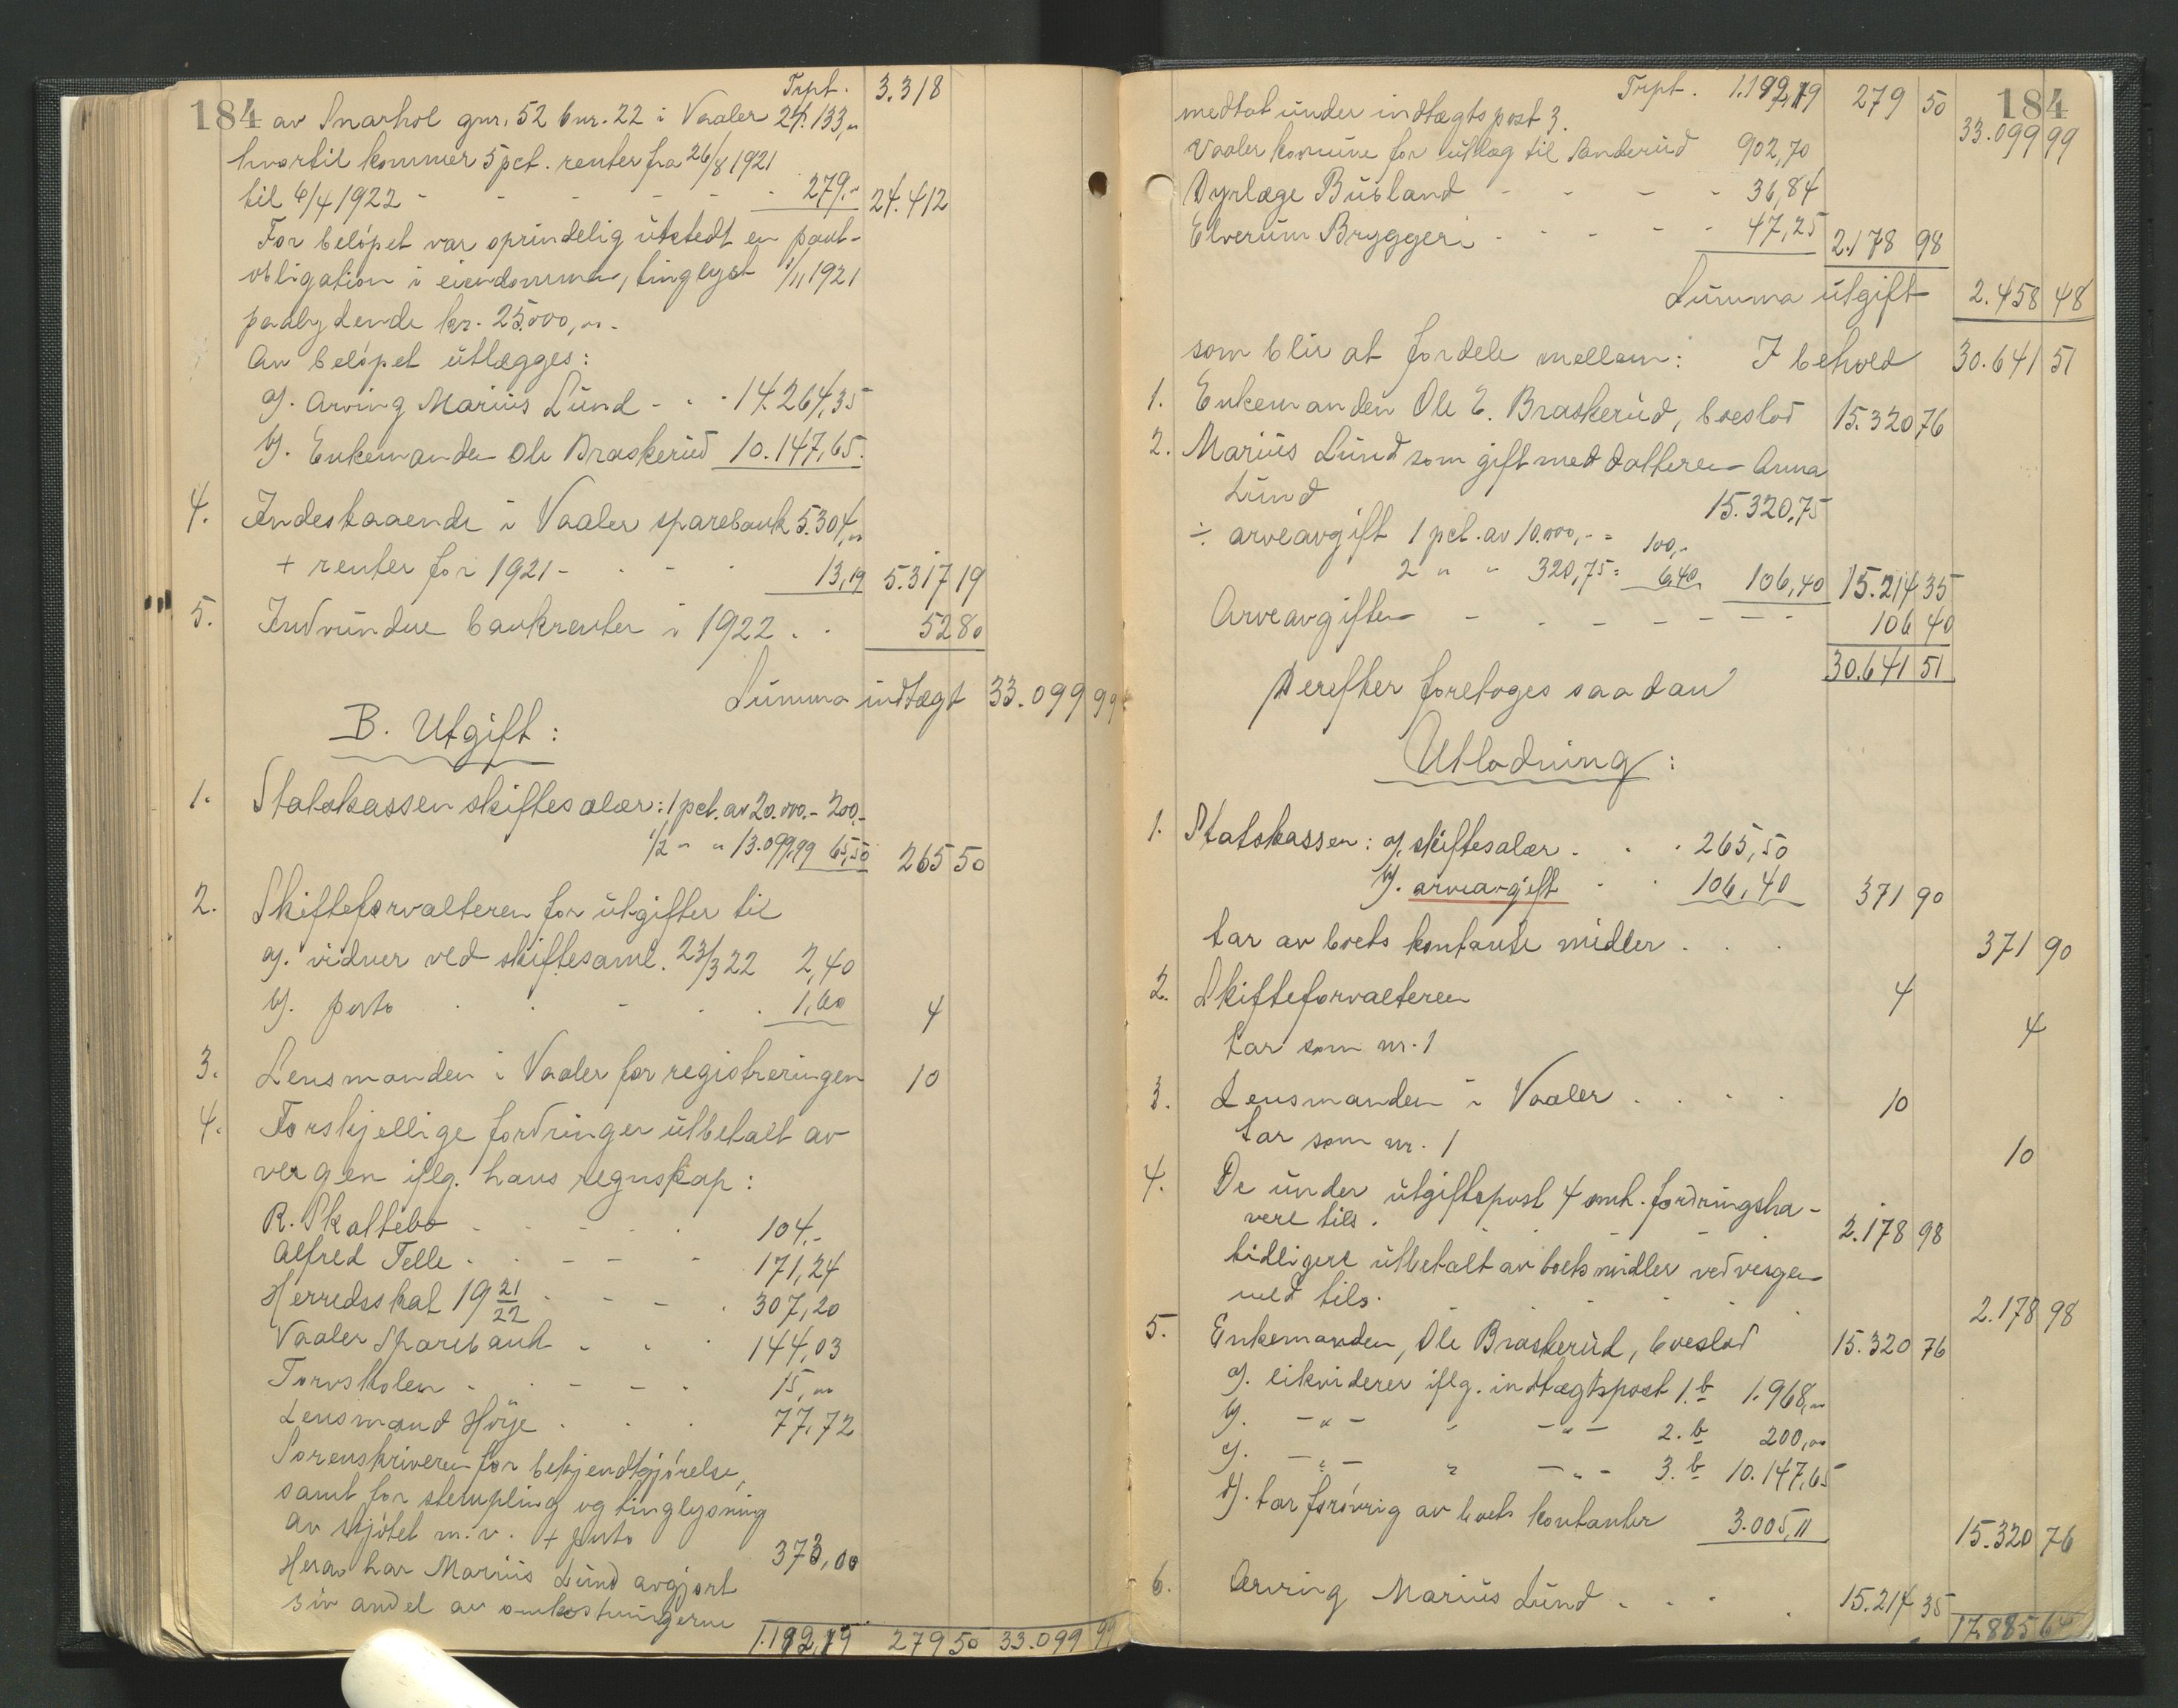 184
Trpt. 3.318
av Snarhol gnr. 52 bnr. 22 i Vaaler 24.133,"
hvortil kommer 5 pct. renter fra 26/8 1921
til 6/4 1922 - - - - - - 279.- 24.412
For beløpet var oprindelig utstedt en pant-
obligation i eiendommen, tinglyst 1/11 1921
paalydende kr. 25.000,"-
Av beløpet utlægges:
a). Arving Marius Lund - - - 14.264,35
b). Enkemanden Ole Braskerud 10.147,65.
4. Indestaaende i Vaaler sparebank 5.304,"
+ renter for 1921 - - - - 13,19 5.317 19
5. Indvundne bankrenter i 1922 . . 52 80
Summa indtægt 33.099 99
B. Utgift:
1. Statskassen skiftesalær: 1 pct. av 20.000.- 200,-
1/2 " " 13.099,99 65,50 265 50
2. Skifteforvalteren for utgifter til
a). vidner ved skiftesaml. 23/3 22 2,40
b). porto . . - . . 1,60 4
3. Lensmanden i Vaaler for registreringen 10
4. Forskjellige fordringer utbetalt av
vergen iflg. hans regnskap:
R. Skaltebo - - - - 104,-
Alfred Telle - - - - - 171,24
Herredsskat 19 21/22 - - - . 307,20
Vaaler Sparebank - - - 144,03
Torvskolen - - - - - 15,"
Lensmand Høije . . . 77,72
Sorenskriveren for bekjendtgjørelse,
samt for stempling og tinglysning
av skjøtet m.v. + porto 373,00
Herav har Marius Lund avgjort
sin andel av omkostningerne
1.192,19 279 50 33.099 99
184
Trpt. 1.192,19 279 50
medtat under indtægtspost 3. 33.099 99
Vaaler komune for utlæg til Sanderud 902,70
Dyrlæge Busland - - - - 36,84
Elverum Bryggeri - - - - - 47,25 2.178 98
Summa utgift 2.458 48
som blir at fordele mellem: I behold 30.641 51
1. Enkemanden Ole E. Braskerud, boeslod 15.320 76
2. Marius Lund som gift med datteren Anna
Lund 15.320,75
÷ arveavgift 1 pct. av 10.000,- = 100,-
2 " " 320,75 = 6,40 106,40 15.214 35
Arveavgiften - - - - - - - 106 40
30.641 51
Derefter foretoges saadan
Utlodning:
1. Statskassen: a). skiftesalær . . . 265,50
b). arveavgift . . 106,40 371 90
tar av boets kontante midler . . . 371 90
2. Skifteforvalteren 4
tar som nr. 1 4
3. Lensmanden i Vaaler . . . . 10
tar som nr. 1 10
4. De under utgiftspost 4 omh. fordringsha-
vere tils. . . . . 2.178 98
tidligere utbetalt av boets midler ved vergen
med tils. 2.178 98
5. Enkemanden, Ole Braskerud, boeslod 15.320 76
a). likviderer iflg. indtægtspost 1.b 1.968,"
b). - " - " - " - 2.b 200,"
c). - " - " - " - 3.b 10.147,65
d). tar forøvrig av boets kontanter 3.005,11 15.320 76
6. Arving Marius Lund . . . . 15.214 35
17.885 64